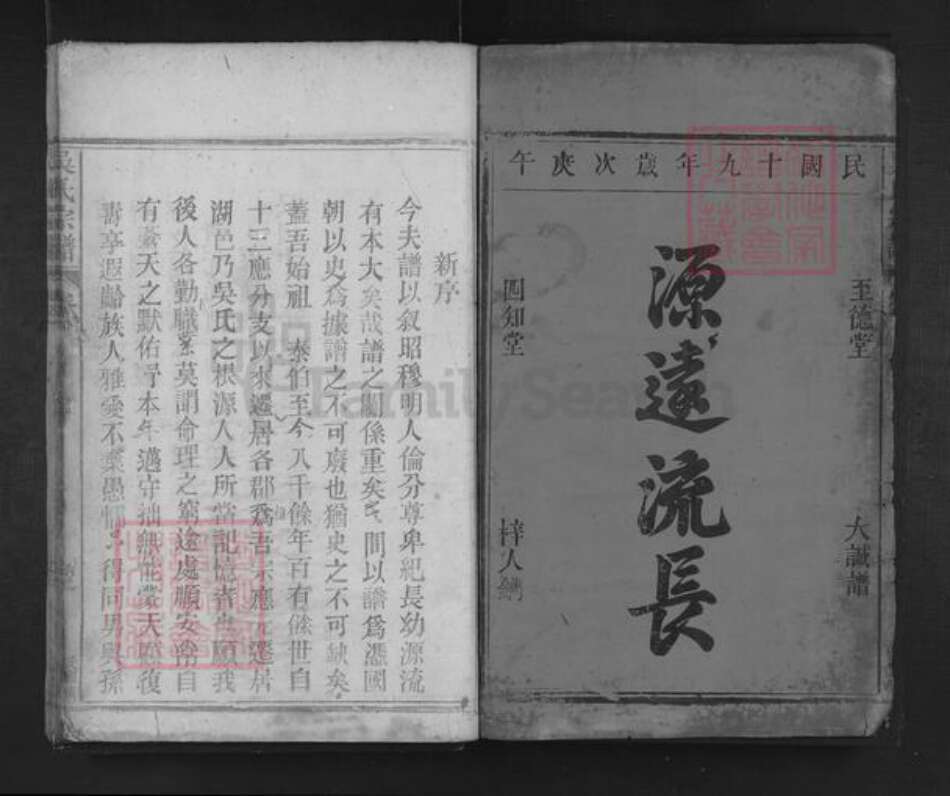 民國十九年歲次庚午
至德堂
大誠譜
源遠流長
四知堂
梓人鐫
新序
今夫譜以叙昭穆明人倫分尊卑紀長幼源流
有本大矣哉譜之關係重矣民間以譜爲憑國
朝以史爲據譜之不可廢也猶史之不可缺矣
蓋吾始祖 泰伯至今八千餘年百有餘世自
十三應分支以來遷居各郡爲吾宗應 遷居
湖邑乃吳氏之根源人人所當記憶者也願我
後人各勤職業莫謂命理之窮途處順安常自
有蒼天之默佑予本年邁守拙無能蒙天 復
壽享遐齡族人雅愛不棄愚 得同男與孫
吳氏宗譜
FamilySearch